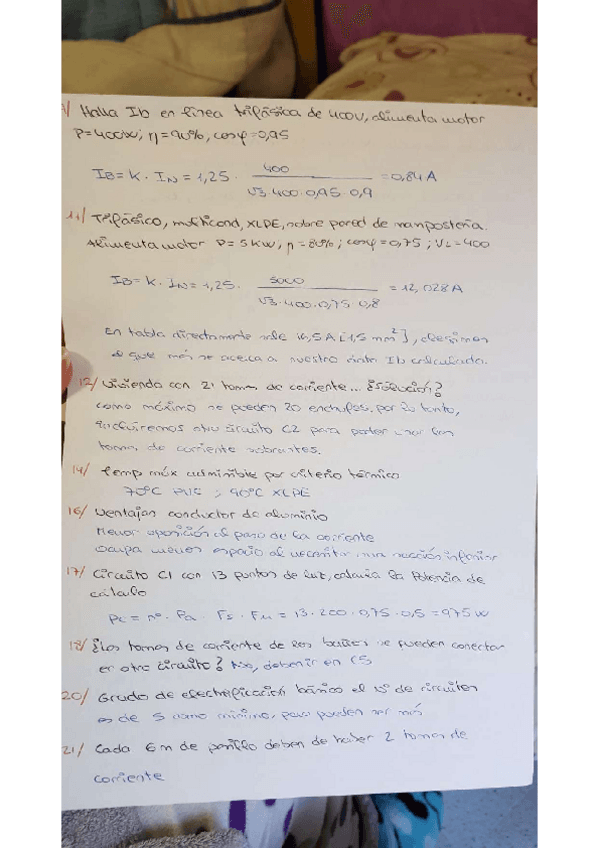 / Halla Ib en línea trifásica de 400V, alimenta motor
P=400W; η=90%, cosφ=0,95
IB= K · IN = 1,25 · 400 / √3·400·0,95·0,9 = 0,84 A
11/ Trifásico, multicond, XLPE, sobre pared de mampostería.
Alimenta motor P=5kW, η=80%; cosφ=0,75; VL=400
IB= K · IN = 1,25 · 5000 / √3·400·0,75·0,8 = 12,028A
En tabla directamente sale 16,5A [1,5 mm²], elegimos
el que más se acerca a nuestro Ib calculada.
12/ Vivienda con 21 tomas de corriente... ¿Solución?
como máximo se pueden 20 enchufes, por lo tanto,
incluiremos otro circuito C2 para poder usar las
tomas de corriente sobrantes.
14/ temp máx admisible por criterio térmico
70ºC PVC ; 90ºC XLPE
16/ ventajas conductor de aluminio
Menor oposición al paso de la corriente
ocupa menos espacio al necesitar una sección inferior
17/ Circuito C1 con 13 puntos de luz, calcula la Potencia de
cálculo
Pc = nº · Pa · Fs · Fu = 13 · 200 · 0,75 · 0,5 = 975 W
18/ ¿Los tomas de corriente de los baños se pueden conectar
en otro circuito? No, deben ir en C5
20/ Grado de electrificación básico el nº de circuitos
es de 5 como mínimo, pero pueden ser más
21/ Cada 5 m de pasillo deben de haber 2 tomas de
corriente